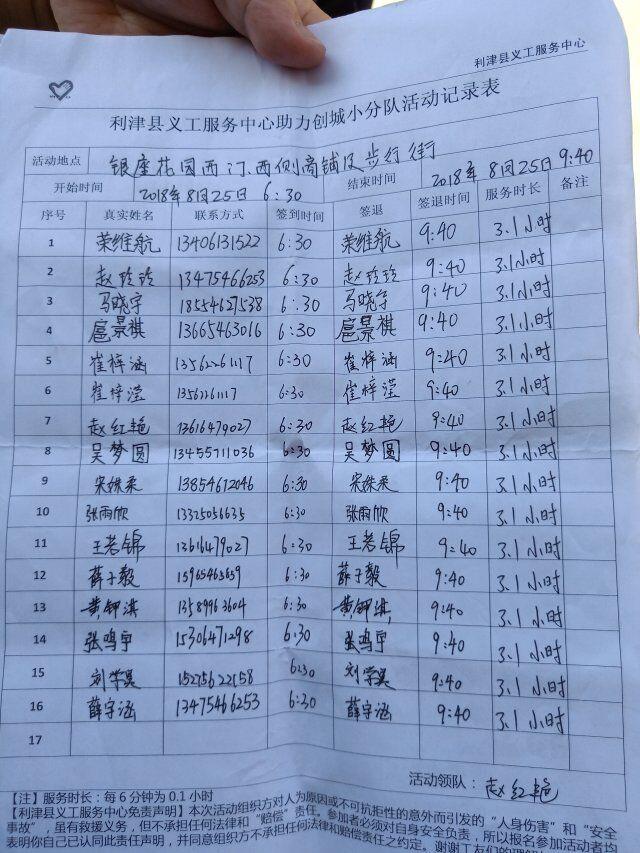 利津县义工服务中心
利津县义工服务中心助力创城小分队活动记录表
活动地点 银座花园西门、西侧商铺及步行街
开始时间 2018年8月25日 6:30 结束时间 2018年8月25日 9:40
序号 真实姓名 联系方式 签到时间 签退 签退时间 服务时长 备注
1 荣维航 13406131522 6:30 荣维航 9:40 3.1小时
2 赵玲玲 13475466253 6:30 赵玲玲 9:40 3.1小时
3 马晓宇 18554627538 6:30 马晓宇 9:40 3.1小时
4 扈景祺 13665463016 6:30 扈景祺 9:40 3.1小时
5 崔梓涵 13562261117 6:30 崔梓涵 9:40 3.1小时
6 崔梓滢 13562261117 6:30 崔梓滢 9:40 3.1小时
7 赵红艳 13616479027 6:30 赵红艳 9:40 3.1小时
8 吴梦圆 13455711036 6:30 吴梦圆 9:40 3.1小时
9 宋姝柔 13854612046 6:30 宋姝柔 9:40 3.1小时
10 张雨欣 13325056635 6:30 张雨欣 9:40 3.1小时
11 王若锦 13616479027 6:30 王若锦 9:40 3.1小时
12 薛子毅 15965465659 6:30 薛子毅 9:40 3.1小时
13 黄钾淇 13589963604 6:30 黄钾淇 9:40 3.1小时
14 张鸣宇 15306471298 6:30 张鸣宇 9:40 3.1小时
15 刘学昊 15275622158 6:30 刘学昊 9:40 3.1小时
16 薛宇涵 13475466253 6:30 薛宇涵 9:40 3.1小时
17
活动领队: 赵红艳
【注】服务时长:每6分钟为0.1小时
【利津县义工服务中心免责声明】本次活动组织方对人为原因或不可抗拒性的意外而引发的“人身伤害”和“安全
事故”,虽有救援义务,但不承担任何法律和“赔偿”责任。参加者必须对自身安全负责,所以报名参加活动者均
表明你自己已认同此责任声明,并同意组织方不承担任何法律和赔偿责任之约定。谢谢工友们的理解